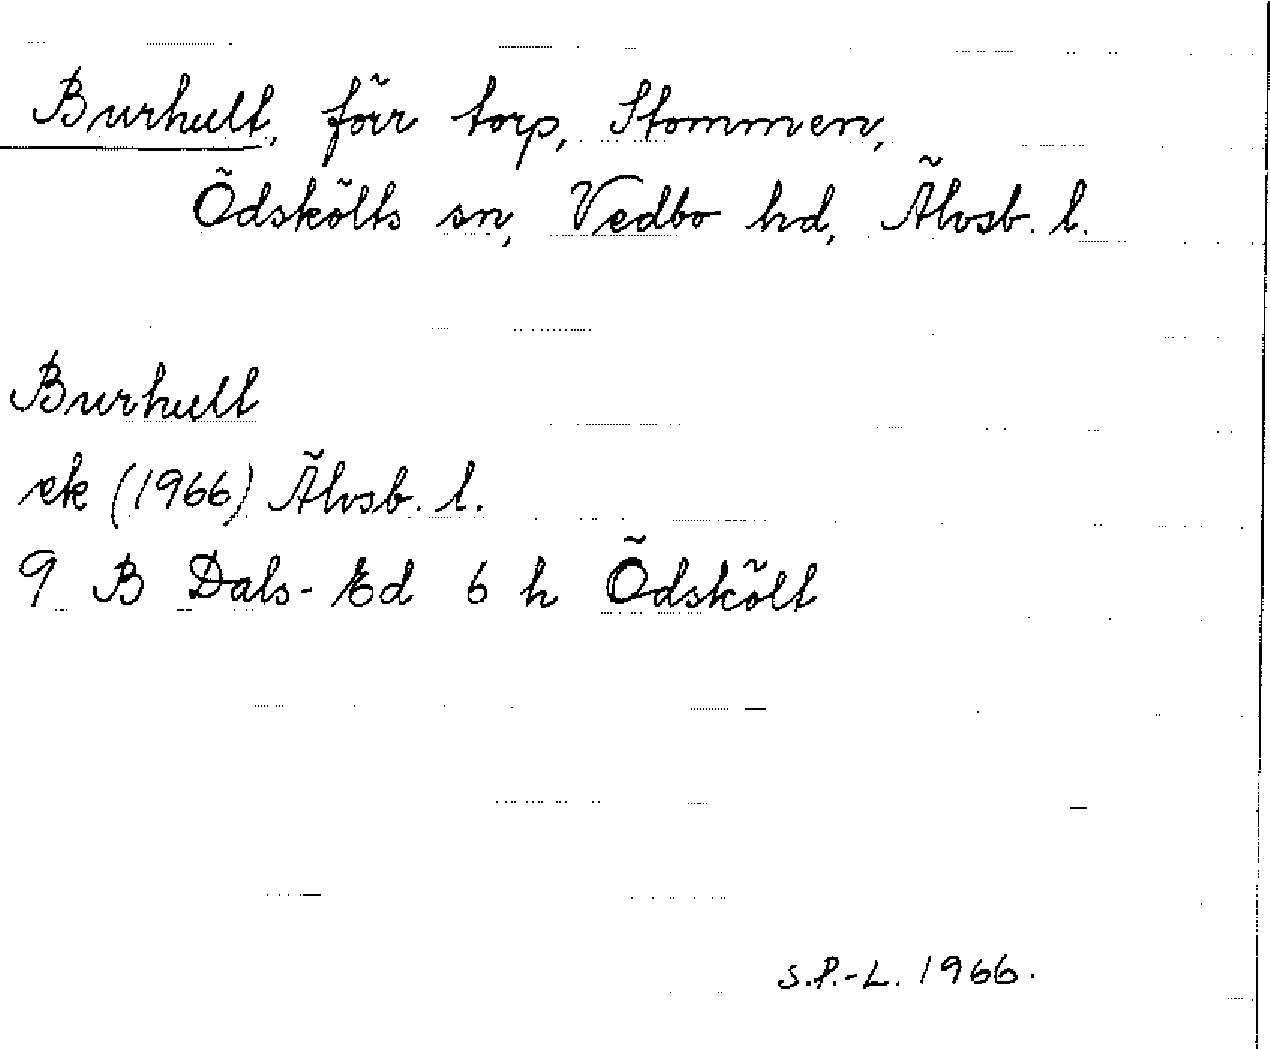 Burhult, förr torp, Stommen,
Ödskölts sn, Vedbo hd, Älvsb. l.
Burhult
ek (1966) Älvsb. l.
9 B Dals-Ed 6 h Ödskölt
S.P.-L. 1966.